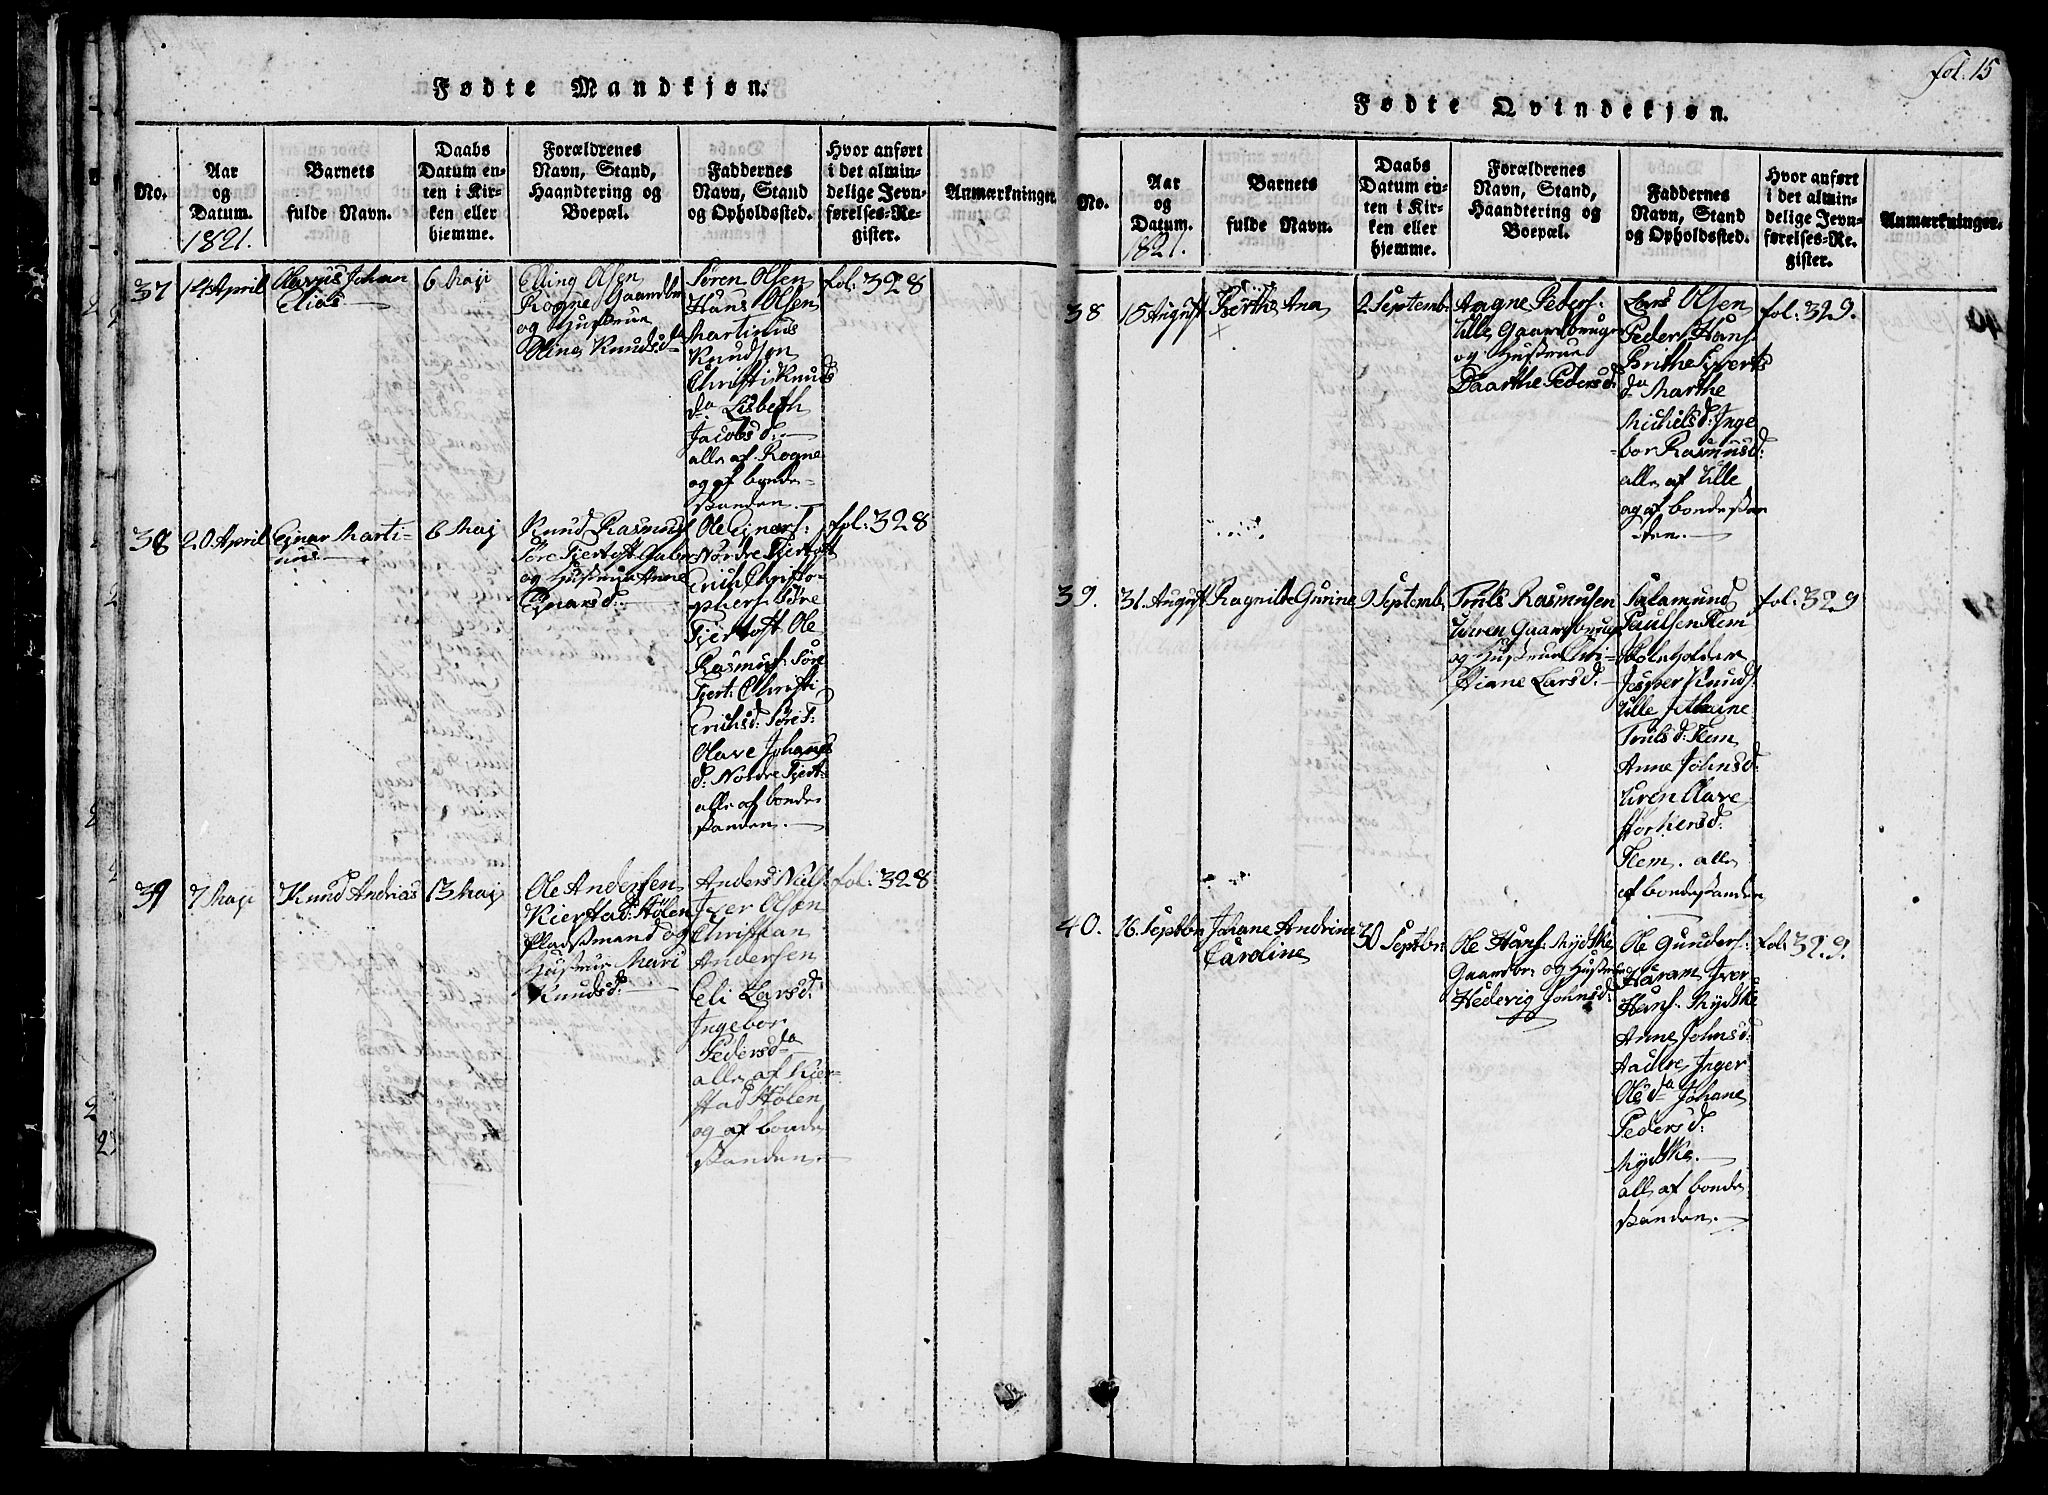 Fødte Mandkjøn.
No.
Aar
og
Datum.
1821.
Barnets
fulde Navn.
Daabs
Datum en-
ten i Kir-
ken eller
hjemme.
Forældrenes
Navn, Stand,
Haandtering og
Boepæl.
Faddernes
Navn, Stand
og Opholdssted.
Hvor anført
i det almin-
delige Jevn-
førelses-Re-
gister.
Anmærkninger
37
14 April
Johan
Elias
6 Maji
Elling Olsen
Rogne Gaardbr
og Hustrue
Oline Knudsd.
Søren Olsen
Hans Olsen
Martinus
Knudsen
Christi Knuds
da Lisbeth
Jacobsd:
alle af Rogne
og af bonde-
standen.
fol: 328
38
20 April
Ejnar Marti-
nus
6 Maj
Knud Rasmus:
Søre Fjertoft Gabr
og Hustrue Anne
Ejnarsd:
Ole Ejners:
Nordre Fjertoft
Erich Christo-
phers: Søre
Fjertoft Ole
Rasmus: Søre
Fjert: Christi
Erichsd: Søre F:
Olave Johanes
d: Nordre Fjert-
alle af bonde
standen.
fol: 328
39
7 Maji
Knud Andrias
13 Maj
Ole Andersen
Kierstad: Stø 
Pladsmand og
Hustrue Mari
Knudsd:
Anders Niels:
Iver Olsen
Christian
Andersen
Eli Larsd:
Ingebor
Pedersda
alle af Kier-
stad Støle​n
og af bonde
standen.
fol: 328
fol. 15
Fødte Qvindekjøn.
No.
Aar
og
Datum.
1821.
Barnets
fulde Navn.
Daabs
Datum en-
ten i Kir-
ken eller
hjemme.
Forældrenes
Navn, Stand,
Haandtering og
Boepæl.
Faddernes
Navn, Stand
og Opholdssted.
Hvor anført
i det almin-
delige Jevn-
førelses-Re-
gister.
Anmærkninger.
38
15 August
Berthe Ana
2 Septemb:
Aagne Peders:
Ulle Gaardbruger
og Hustrue
Daarthe Pedersd:
Lars Olsen
Peder Hans:
Brithe Syverts
da Marthe
Michelsd: Inge
bor Rasmusd:
alle af Ulle
og af bondestan
den.
fol: 329.
39.
31. August
Ragnilde Gurine
9 Septemb.
Truls Rasmusen
Uren Gaardbruger
og Hustrue Chri-
stiane Larsd:
Salamund
Paulsen Flem
Skoleholder
Jesper Knuds:
Ulle
Trulsd: Flem
Anne Johnsd:
Uren Olave
Flem. alle
af bondestanden
fol: 329
40.
16. Septbr
Johane Andrine
Caroline
30 Septbr:
Ole Hans: Mydske
Gaardbr og Hustrue
Hedevig Johnsd:
Ole Gunders:
Haram Iver
Hans: Mydske
Anne Johnsd:
Aaclre Inger
Olsda Johane
Pedersd:
Mydske.
alle af bonde
standen.
fol: 329.